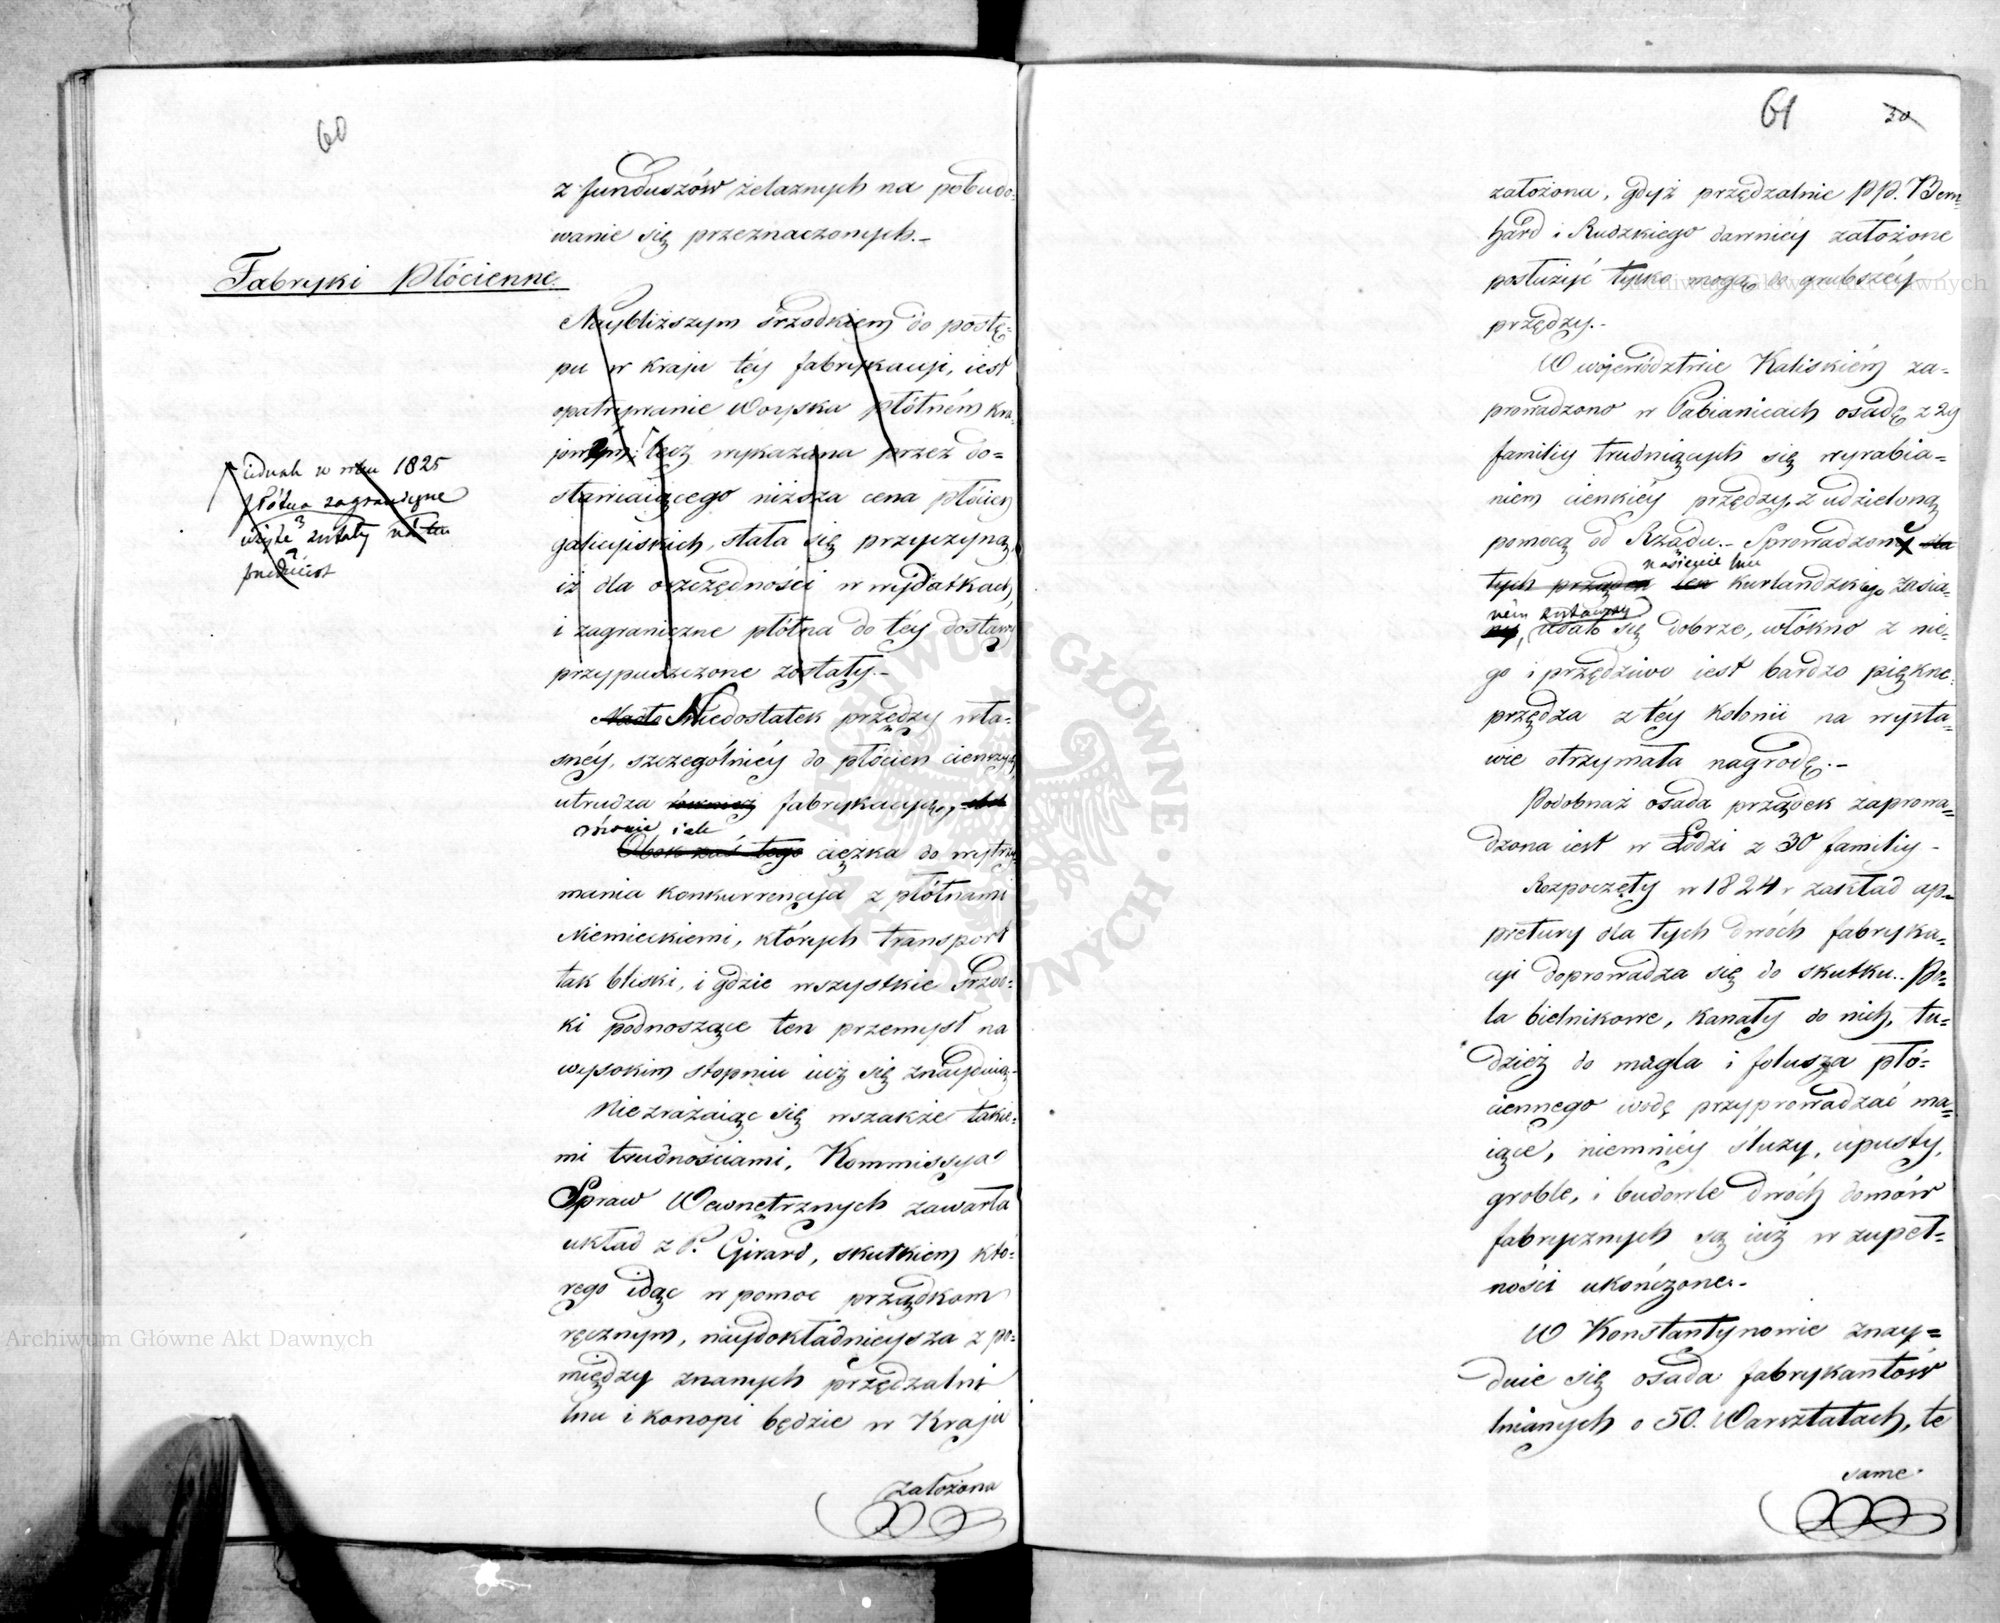 60
z funduszów żelaznych na pobudo-
wanie się przeznaczonych.-
Fabryki Płócienne.
Naybliższym śrzodkiem do postę-
pu w kraju téy fabrykacyi, iest
opatrywanie Woyska płótném kra-
jowym; lecz wykazana przez do-
stawiaiącego niższa cena płócien
galicyiskich, stała się przyczyną,
iż dla oszczędności w wydatkach,
i zagraniczne płótna do téy dostawy
przypuszczone zostały.-
iednak w roku 1825
płótna zagraniczne
wzięte zostały na ten
przedmiot
Niedostatek przędzy wła-
snéy, szczególniéy do płócien cieńszych,
utrudza fabrykacyę,
równie iak
Obok zaś tego ciężka do wytrzy-
mania konkurrencya z płótnami
Niemieckiemi, których transport
tak bliski, i gdzie wszystkie śrzod-
ki podnoszące ten przemysł na
wysokim stopniu iuż się znayduią.-
Niezrażaiąc się wszakże takie-
mi trudnościami, Kommissya
Spraw Wewnętrznych zawarła
układ z P. Girard, skutkiem któ-
rego idąc w pomoc prządkom
ręcznym, naydokładnieysza z po-
między znanych przędzalni
lnu i konopi będzie w Kraju
założona
61
30
założona, gdyż przędzalnie PP. Bern-
hard i Rudzkiego dawniéy założone
posłużyć tylko mogą do grubszéy
przędzy.-
W województwie Kaliskiém za-
prowadzono w Pabianicach osadę z 29
familiy trudniących się wyrabia-
niem cienkiéy przędzy, z udzieloną
pomocą od Rządu.- Sprowadzone dla
nasienie lnu
tych prządek len kurlandzkiego zasia-
ném zostawszy
ny, udało się dobrze, włókno z nie-
go i przędziwo iest bardzo piękne,
przędza z téy kolonii na wysta-
wie otrzymała nagrodę.-
Podobnaż osada prządek zaprowa-
dzona iest w Łodzi z 30 familiy-
Rozpoczęty w 1824 r zakład ap-
pretury dla tych dwóch fabryka-
cyi doprowadza się do skutku.. Po-
la bielnikowe, kanały do nich, tu-
dzież do magla i folusza płó-
ciennego wodę przyprowadzać ma-
iące, niemniéy śluzy, upusty,
groble, i budowle dwóch domów
fabrycznych są iuż w zupeł-
ności ukończone.-
W Konstantynowie znay-
duie się osada fabrykantów
lnianych o 50. Warsztatach, te
same
Archiwum Główne Akt Dawnych
Archiwum Główne Akt Dawnych
ARCHIWUM GŁÓWNE AKT DAWNYCH